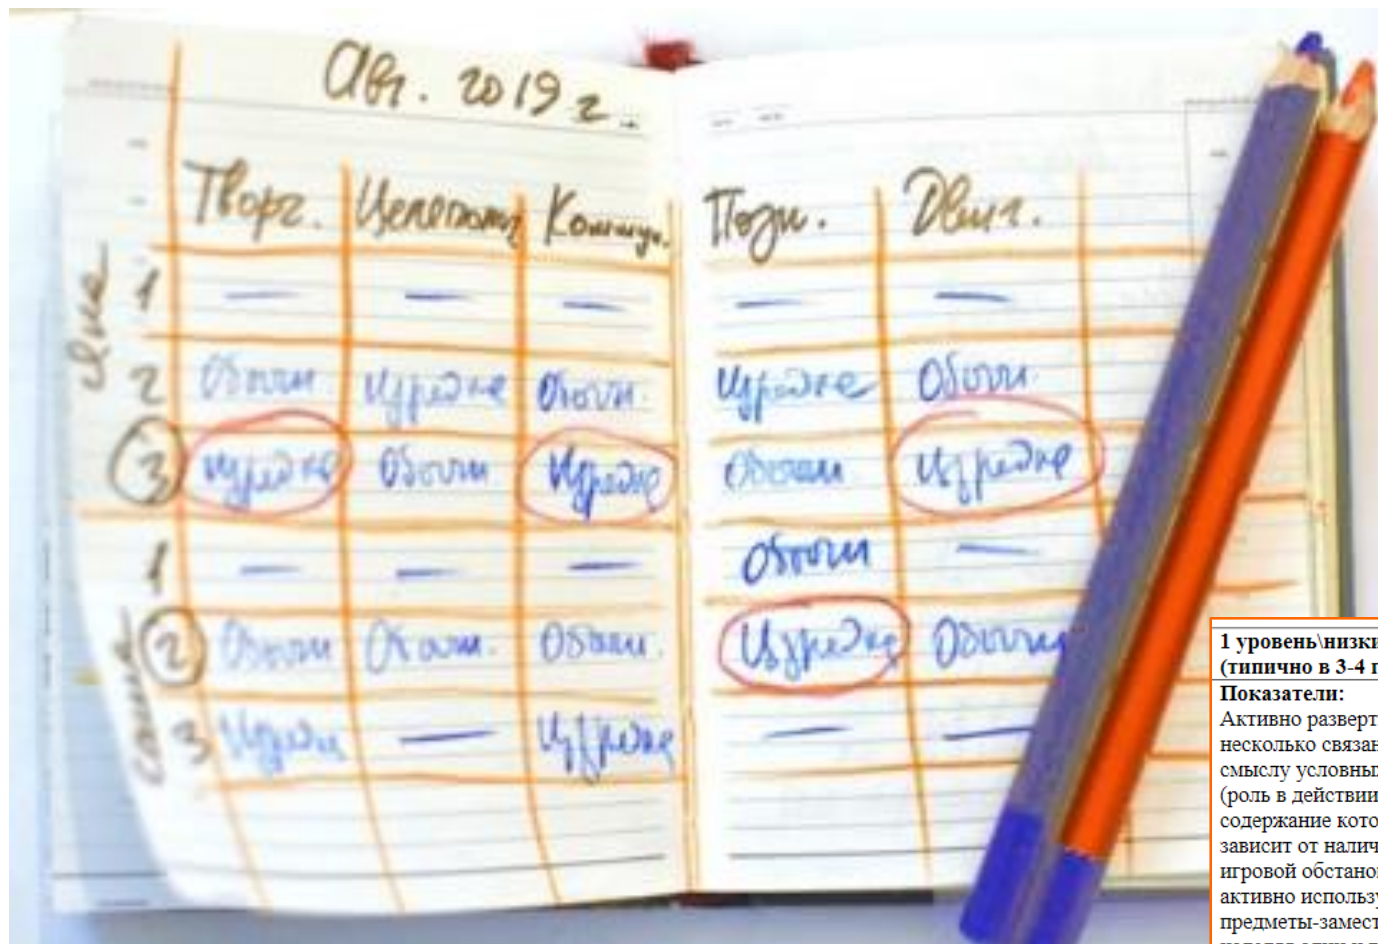 Авг. 2019 г.
Творч. Целеполаг Коммун. Позн. Двиг.
Яна
1 — — — — —
2 Обычн Изредка Обычн. Изредка Обычн.
3 Изредка Обычн Изредка Обычн Изредка
Саша
1 — — — Обычн —
2 Обычн Обычн. Обычн. Изредка Обычн
3 Изредк — Изредка — —
1 уровень\низки
(типично в 3-4 г
Показатели:
Активно разверт
несколько связан
смыслу условны
(роль в действии
содержание кото
зависит от налич
игровой обстано
активно использу
предметы-замест